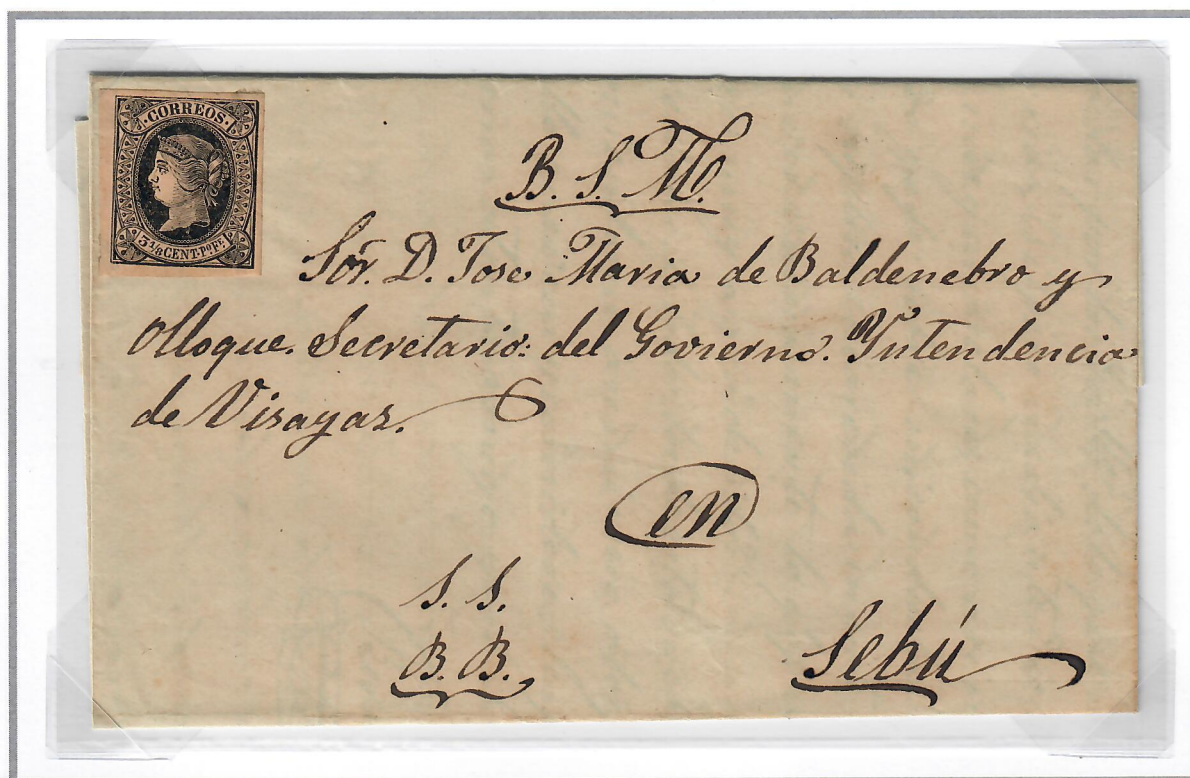 CORREOS
3 1/8 CENT. Pº Fᵉ
B. S. M.
Sór. D. Jose Maria de Baldenebro y
Olloque. Secretario: del Govierno. Yntendencia
de Visayas.
en
S. S.
B. B.
Sebú